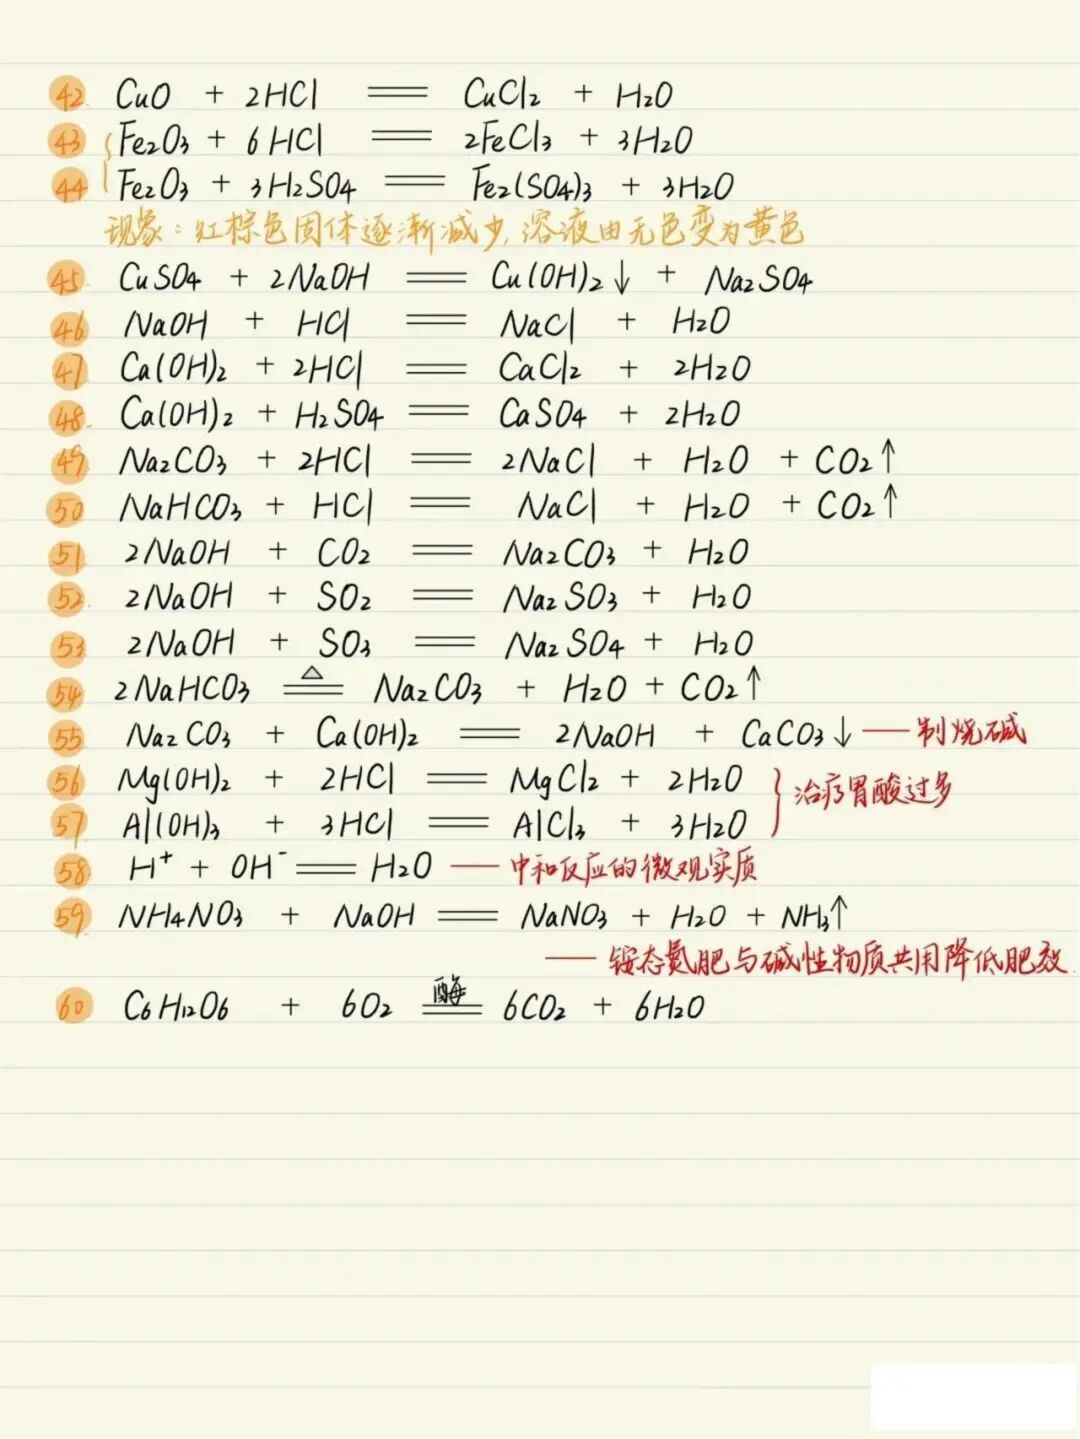 42. CuO + 2HCl ═ CuCl₂ + H₂O
43 Fe₂O₃ + 6HCl ═ 2FeCl₃ + 3H₂O
44 Fe₂O₃ + 3H₂SO₄ ═ Fe₂(SO₄)₃ + 3H₂O
现象：红棕色固体逐渐减少,溶液由无色变为黄色
45. CuSO₄ + 2NaOH ═ Cu(OH)₂↓ + Na₂SO₄
46 NaOH + HCl ═ NaCl + H₂O
47 Ca(OH)₂ + 2HCl ═ CaCl₂ + 2H₂O
48. Ca(OH)₂ + H₂SO₄ ═ CaSO₄ + 2H₂O
49 Na₂CO₃ + 2HCl ═ 2NaCl + H₂O + CO₂↑
50 NaHCO₃ + HCl ═ NaCl + H₂O + CO₂↑
51 2NaOH + CO₂ ═ Na₂CO₃ + H₂O
52. 2NaOH + SO₂ ═ Na₂SO₃ + H₂O
53. 2NaOH + SO₃ ═ Na₂SO₄ + H₂O
54 2NaHCO₃ ═△═ Na₂CO₃ + H₂O + CO₂↑
55 Na₂CO₃ + Ca(OH)₂ ═ 2NaOH + CaCO₃↓ —— 制烧碱
56 Mg(OH)₂ + 2HCl ═ MgCl₂ + 2H₂O } 治疗胃酸过多
57. Al(OH)₃ + 3HCl ═ AlCl₃ + 3H₂O
58 H⁺ + OH⁻ ═ H₂O —— 中和反应的微观实质
59. NH₄NO₃ + NaOH ═ NaNO₃ + H₂O + NH₃↑
—— 铵态氮肥与碱性物质共用降低肥效.
60 C₆H₁₂O₆ + 6O₂ ═酶═ 6CO₂ + 6H₂O